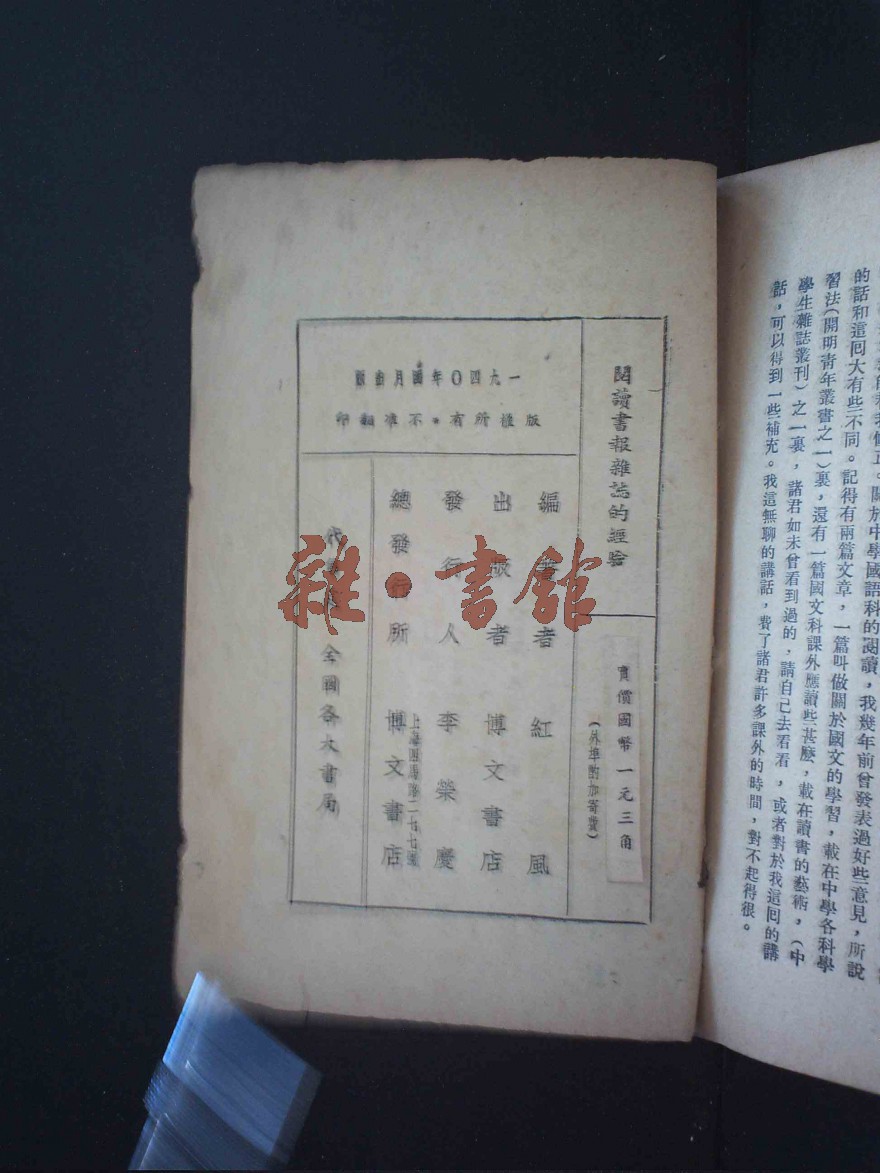 的話和這回大有些不同。記得有兩篇文章，一篇叫做關於國文的學習，載在中學各科學
習法（開明青年叢書之一）裏，還有一篇國文科課外應讀些甚麼，載在讀書的藝術，（中
學生雜誌叢刊）之一裏，諸君如未曾看到過的，請自己去看看，或者對於我這回的講
話，可以得到一些補充。我這無聊的講話，費了諸君許多課外的時間，對不起得很。
閱讀書報雜誌的經驗
實價國幣一元三角
（外埠酌加寄費）
一九四〇年四月初版
版權所有•不准翻印
編著者 紅風
出版者 博文書店
發行人 李榮慶
總發行所 博文書店
全國各大書局
雜•書館